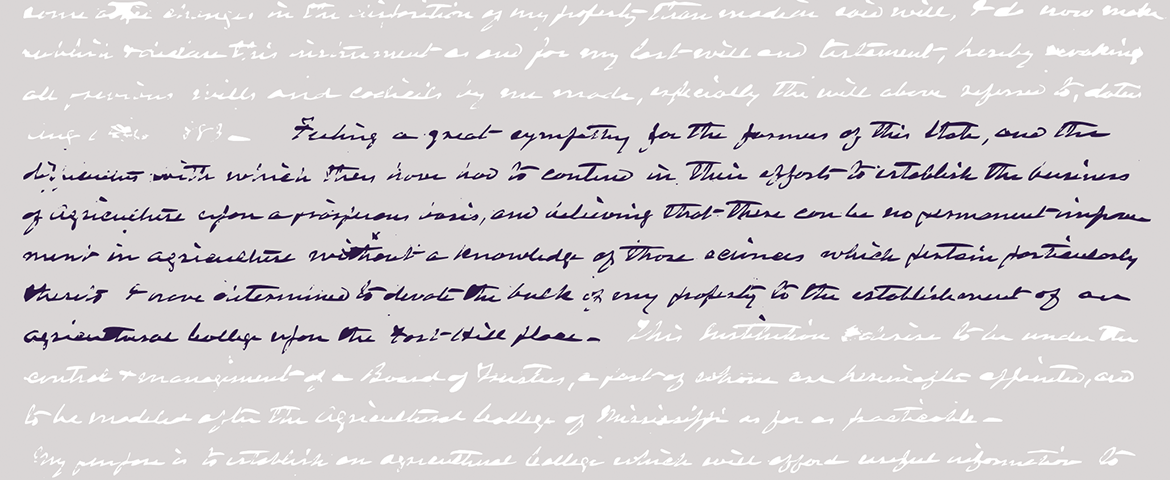 some changes in the disposition of my property than made in said will, I do now make
publish & declare this instrument as and for my last will and testament, hereby revoking
all previous wills and codicils by me made, especially the will above referred to, dated
Feeling a great sympathy for the farmers of this State, and the
difficulties with which they have had to contend in their efforts to establish the business
of Agriculture upon a prosperous basis, and believing that there can be no permanent improve
ment in agriculture without a knowledge of those sciences which pertain particularly
thereto I have determined to devote the bulk of my property to the establishment of an
agricultural College upon the Fort-Hill place –
This Institution I desire to be under the
control & management of a Board of Trustees, a part of whom are hereinafter appointed, and
to be modeled after the Agricultural College of Mississippi as far as practicable –
My purpose is to establish an agricultural College which will afford useful information to